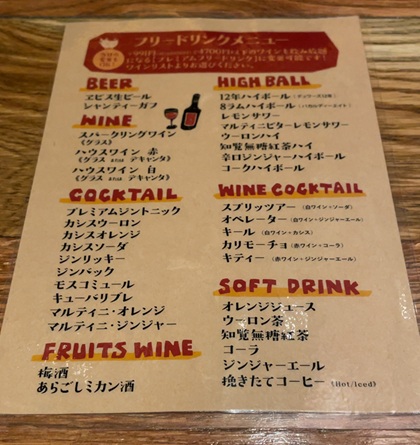 フリードリンクメニュー
になる「プレミアムフリードリンク」に変更可能です!
ワインリストよりお選びください。
BEER
ヱビス生ビール
シャンディーガフ
WINE
スパークリングワイン
(グラス)
ハウスワイン 赤
(グラス または デキャンタ)
ハウスワイン 白
(グラス または デキャンタ)
COCKTAIL
プレミアムジントニック
カシスウーロン
カシスオレンジ
カシスソーダ
ジンリッキー
ジンバック
モスコミュール
キューバリブレ
マルティニ・オレンジ
マルティニ・ジンジャー
FRUITS WINE
梅酒
あらごしミカン酒
HIGH BALL
12年ハイボール
8ラムハイボール
レモンサワー
マルティニビターレモンサワー
ウーロンハイ
知覧無糖紅茶ハイ
辛口ジンジャーハイボール
コークハイボール
WINE COCKTAIL
スプリッツアー (白ワイン・ソーダ)
オペレーター (白ワイン・ジンジャーエール)
キール (白ワイン・カシス)
カリモーチョ (赤ワイン・コーラ)
キティー (赤ワイン・ジンジャーエール)
SOFT DRINK
オレンジジュース
ウーロン茶
知覧無糖紅茶
コーラ
ジンジャーエール
挽きたてコーヒー (Hot/Iced)